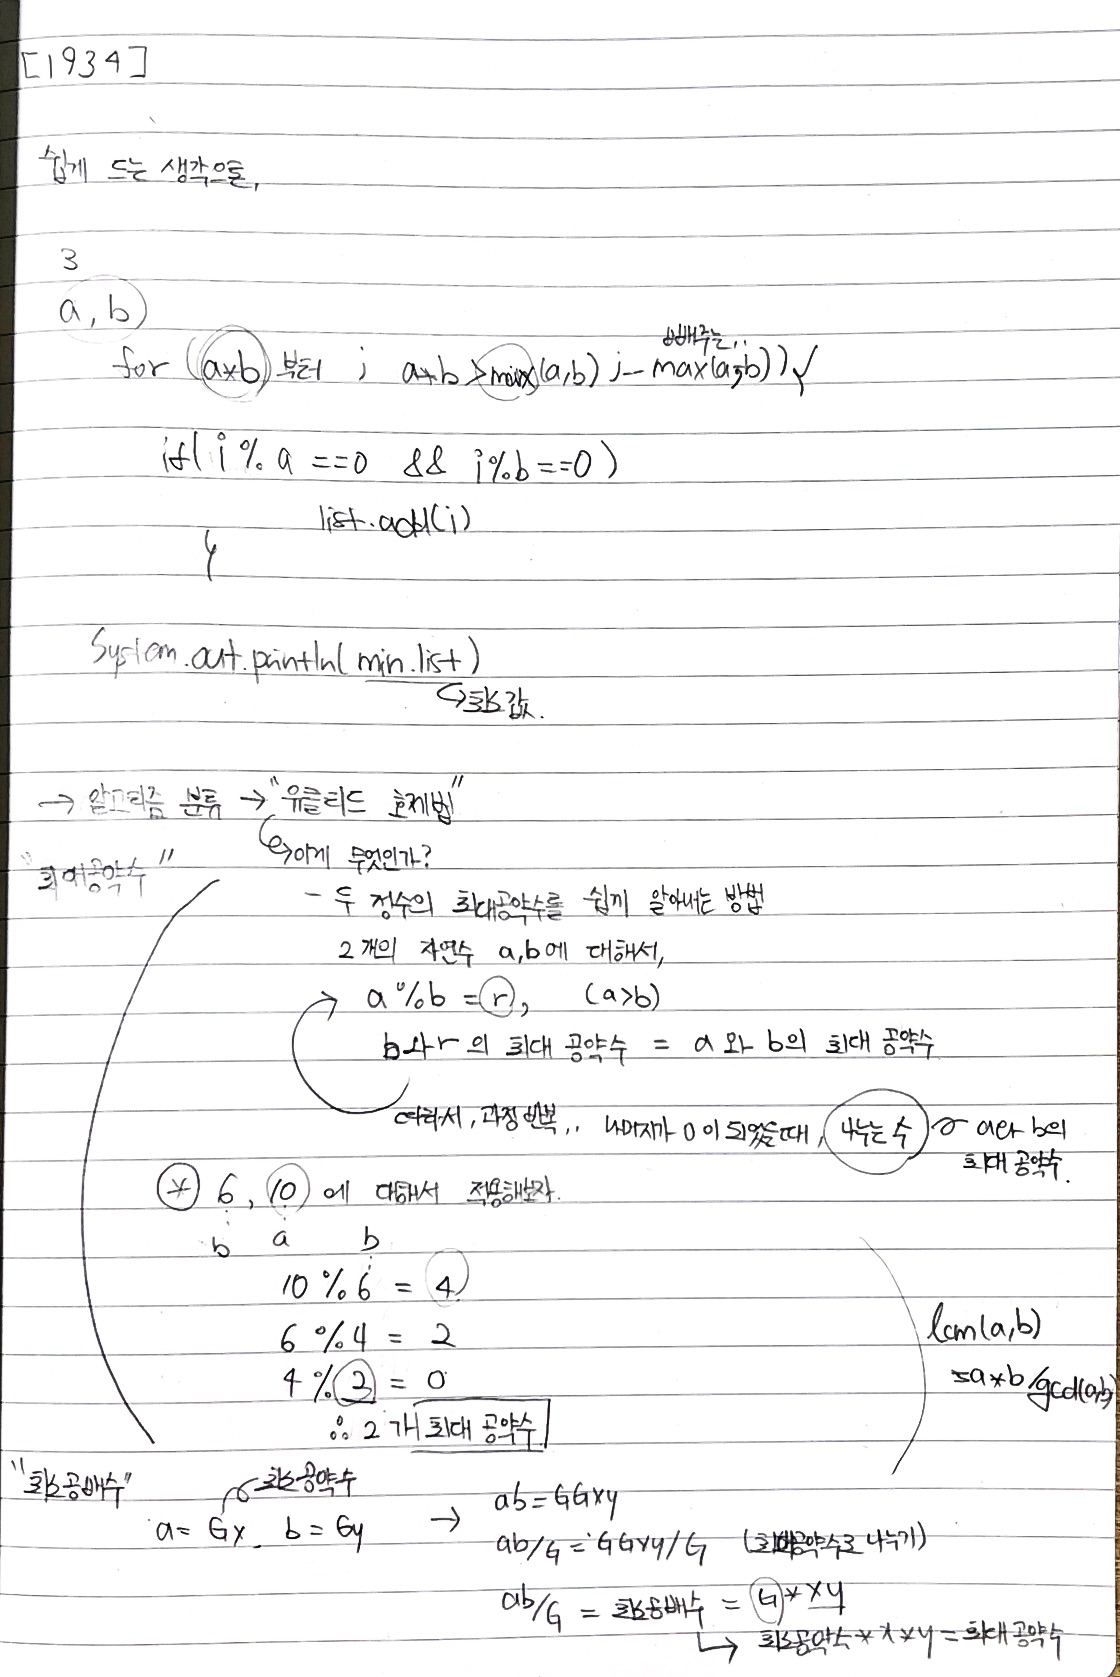 [1934]
쉽게 드는 생각으론,
3
a, b)
빼주는..
for (a*b 부터 ; a*b > max(a,b) ; - max(a,b)) {
if( i % a ==0 && i%b ==0 )
list.add(i)
}
System.out.println( min.list )
↳ 최소값.
→ 알고리즘 분류 → "유클리드 호제법"
↳ 이게 무엇인가?
"최대공약수"
- 두 정수의 최대공약수를 쉽게 알아내는 방법
2개의 자연수 a,b에 대해서,
a % b = r, (a>b)
b와 r 의 최대 공약수 = a 와 b의 최대 공약수
따라서, 과정 반복,, 나머지가 0이 되었을때, 나누는 수 a와 b의
최대 공약수.
* 6, 10 에 대해서 적용해보자.
b a b
10 % 6 = 4
6 % 4 = 2
4 % 2 = 0
∴ 2 가 최대 공약수
lcm(a,b)
=a*b/gcd(a,b)
"최소공배수"
최소공약수
a = Gx. b = Gy → ab = GGxy
ab/G = GGxy/G (최대공약수로 나누기)
ab/G = 최소공배수 = G * xy
↳ 최소공약수 * x * y = 최대공약수